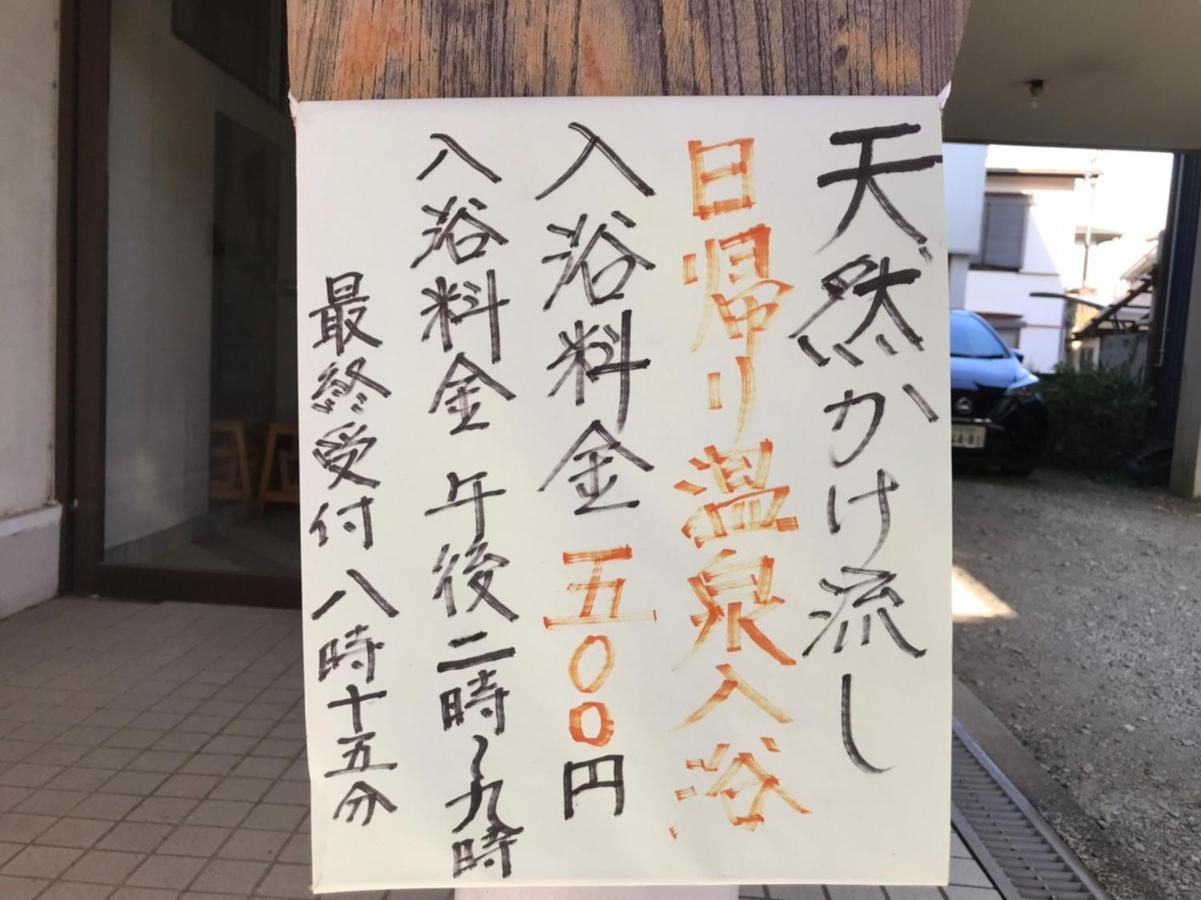 天然かけ流し
日帰り温泉入浴
入浴料金 五〇〇円
入浴料金 午後二時〜九時
最終受付 八時十五分